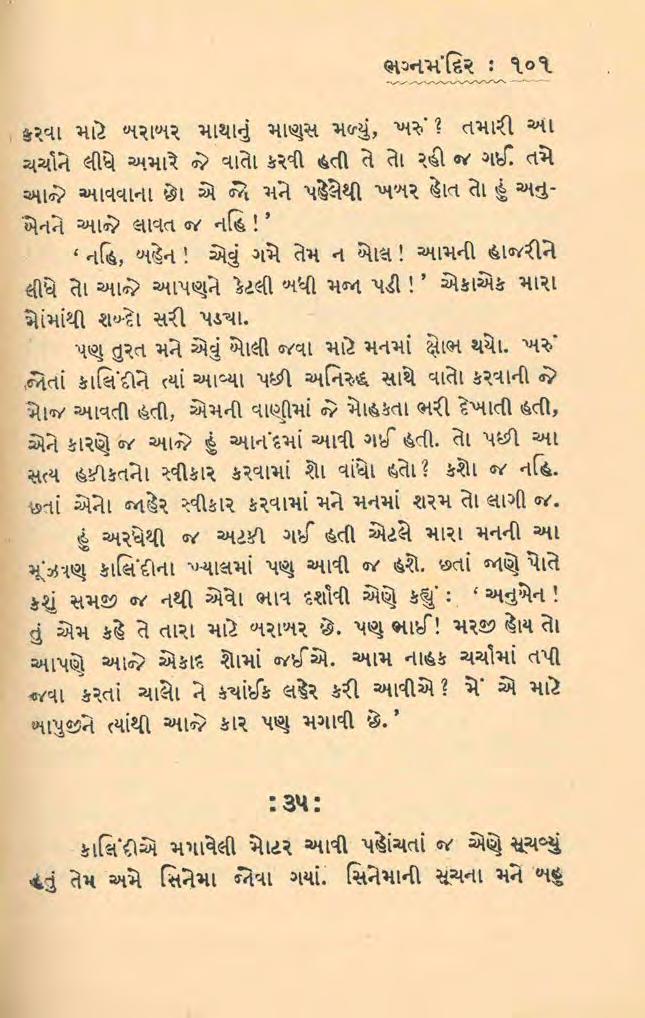 ભગ્નમંદિર : ૧૦૧
કરવા માટે બરાબર માથાનું માણસ મળ્યું, ખરું ? તમારી આ
ચર્ચાને લીધે અમારે જે વાતો કરવી હતી તે તો રહી જ ગઈ. તમે
આજે આવવાના છો એ જો મને પહેલેથી ખબર હોત તો હું અનુ-
બેનને આજે લાવત જ નહિ !’
‘ નહિ, બહેન ! એવું ગમે તેમ ન બોલ ! આમની હાજરીને
લીધે તો આજે આપણને કેટલી બધી મજા પડી !’ એકાએક મારા
મોંમાંથી શબ્દો સરી પડ્યા.
પણ તુરત મને એવું બોલી જવા માટે મનમાં ક્ષોભ થયો. ખરું
જોતાં કાલિંદીને ત્યાં આવ્યા પછી અનિરુદ્ધ સાથે વાતો કરવાની જે
મોજ આવતી હતી, એમની વાણીમાં જે મોહકતા ભરી દેખાતી હતી,
એને કારણે જ આજે હું આનંદમાં આવી ગઈ હતી. તો પછી આ
સત્ય હકીકતનો સ્વીકાર કરવામાં શો વાંધો હતો ? કશો જ નહિ.
છતાં એનો જાહેર સ્વીકાર કરવામાં મને મનમાં શરમ તો લાગી જ.
હું અરધેથી જ અટકી ગઈ હતી એટલે મારા મનની આ
મૂંઝવણ કાલિંદીના ખ્યાલમાં પણ આવી જ હશે. છતાં જાણે પોતે
કશું સમજી જ નથી એવો ભાવ દર્શાવી એણે કહ્યું : ‘ અનુબેન !
તું એમ કહે તે તારા માટે બરાબર છે. પણ ભાઈ ! મરજી હોય તો
આપણે આજે એકાદ શોમાં જઈએ. આમ નાહક ચર્ચામાં તપી
જવા કરતાં ચાલો ને ક્યાંઈક લહેર કરી આવીએ ? મેં એ માટે
બાપુજીને ત્યાંથી આજે કાર પણ મગાવી છે.’
: ૩૫ :
કાલિંદીએ મગાવેલી મોટર આવી પહોંચતાં જ એણે સૂચવ્યું
હતું તેમ અમે સિનેમા જોવા ગયાં. સિનેમાની સૂચના મને બહુ